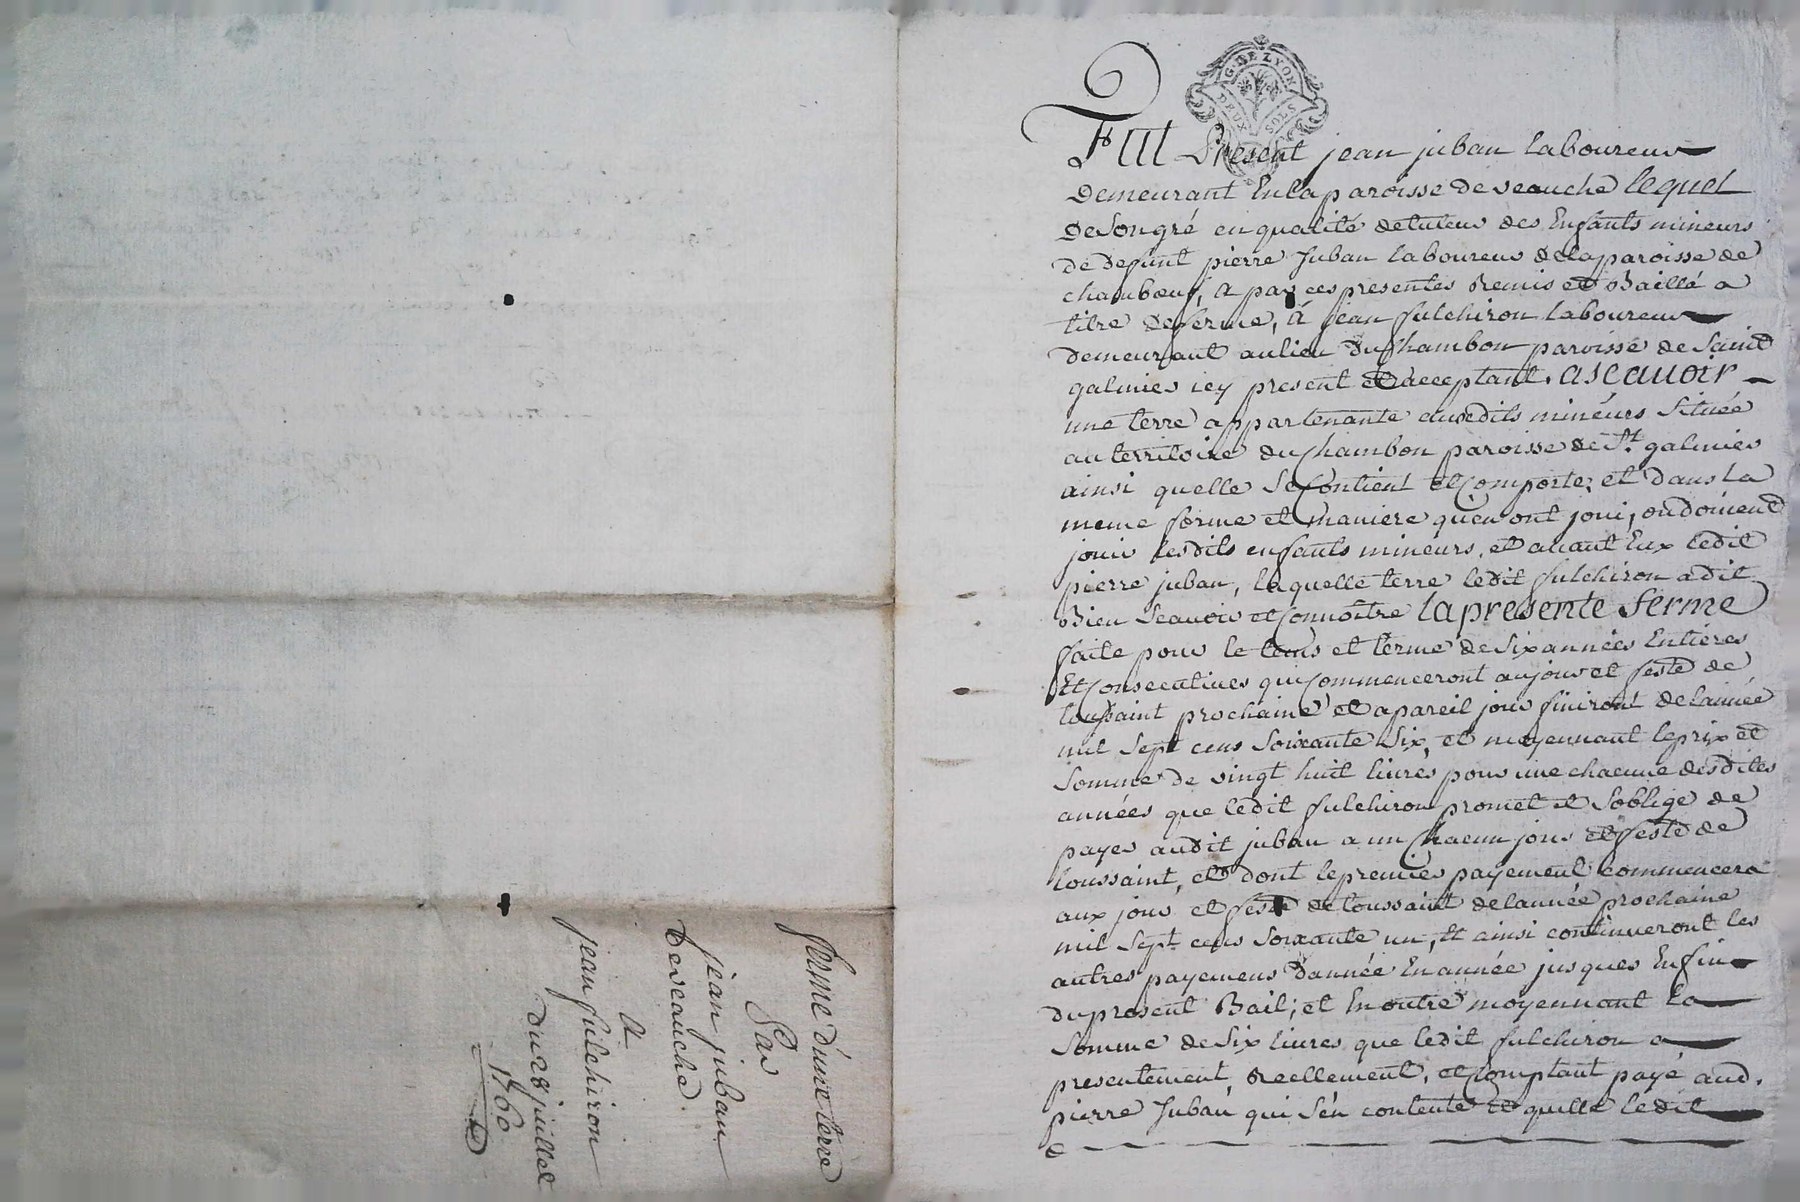 G. DE LYON
DEUX SOLS
Fut Present jean juban laboureur
Demeurant En la paroisse de veauche lequel
De Son gré en qualité de tuteur des Enfants mineurs
de defunt pierre Juban laboureur de la paroisse de
chambœuf, a par ces presentes Remis et Baillé a
titre de ferme, à jean fulchiron laboureur
demeurant au lieu du Chambon paroisse de Saint
galmier icy present et acceptant. ascavoir
une terre appartenante auxdits mineurs Située
au territoire du Chambon paroisse de St. galmier
ainsi quelle Se Contient et Comporte, et dans la
meme forme et maniere qu'en ont joui, ou doivent
jouir lesdits enfants mineurs, et avant Eux ledit
pierre juban, laquelle terre ledit fulchiron a dit
Bien Scavoir et Connoître la presente ferme
faite pour le tems et terme de Six années Entières
Et Consecutives qui Commenceront au jour et feste de
toussaint prochaine et a pareil jour finiront de l'année
mil Sept cens Soixante Six, et moyennant le prix et
Somme de vingt huit livres pour une chacune desdites
années que ledit fulchiron promet et S'oblige de
payer audit juban a un Chacun jour et feste de
toussaint, et dont le premier payement commencera
aux jour et feste de toussaint de l'année prochaine
mil Sept cens Soixante un, et ainsi continueront les
autres payemens d'année En année jusques En fin
du present Bail; et En outre moyennant la
Somme de Six livres que ledit fulchiron a
presentement, Reellement, et Comptant payé aud.
pierre Juban qui S'en contente et quitte ledit
ferme d'une terre
Par
jean juban
De veauche.
A
jean fulchiron
du 28 juillet
1760